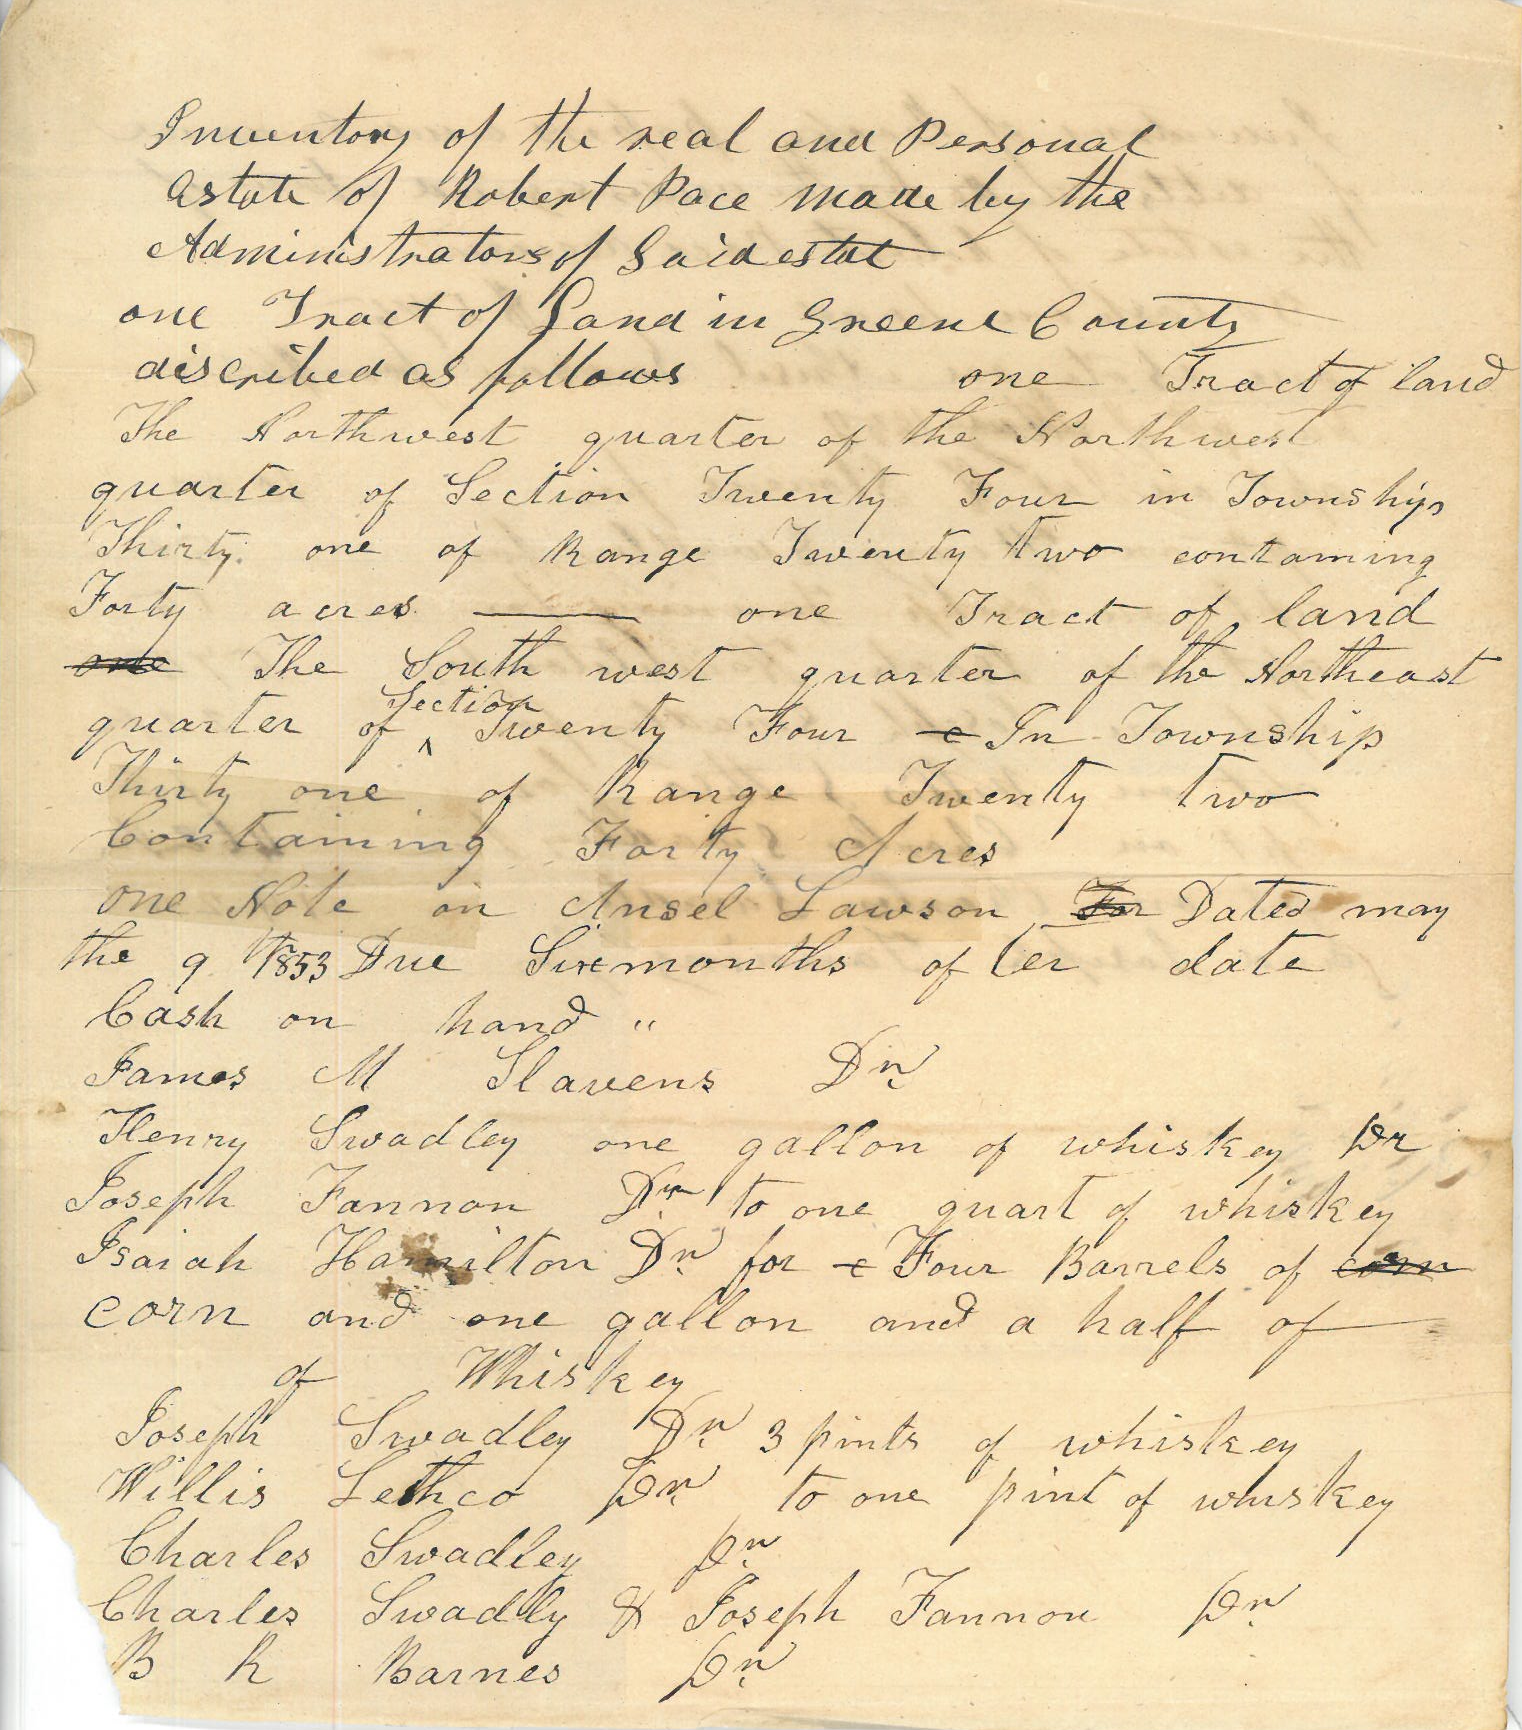 Inventory of the real and Personal
Astate of Robert Pace made by the
Administrators of Said estat
one Tract of Land in Greene County
discribed as follows one Tract of land
The Northwest quarter of the Northwest
quarter of Section Twenty Four in Township
Thirty one of Range Twenty two containing
Forty acres —— one Tract of land
one The South west quarter of the Northeast
quarter of Section Twenty Four In Township
Thirty one of Range Twenty two
Containing Forty Acres
one Note on Ansel Lawson For Dated may
the 9th 1853 Due Six months after date
Cash on hand "
James M Slavens Dr
Henry Swadley one gallon of whiskey Dr
Joseph Fannon Dr to one quart of whiskey
Isaiah Hamilton Dr for Four Barrels of corn
corn and one gallon and a half of
of Whiskey
Joseph Swadley Dr 3 pints of whiskey
Willis Lethco Dr to one pint of whiskey
Charles Swadley Dr
Charles Swadly & Joseph Fannon Dr
B R Barnes Dr